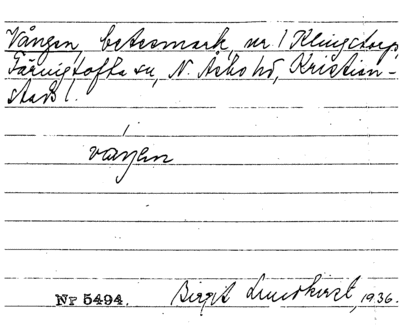 Vången, betesmark, nr 1 Klingstorp,
Färingtofta sn, N. Åsbo hd, Kristian-
stads l.
vaŋen
Nr 5494. Birgit Lundkvist, 1936.